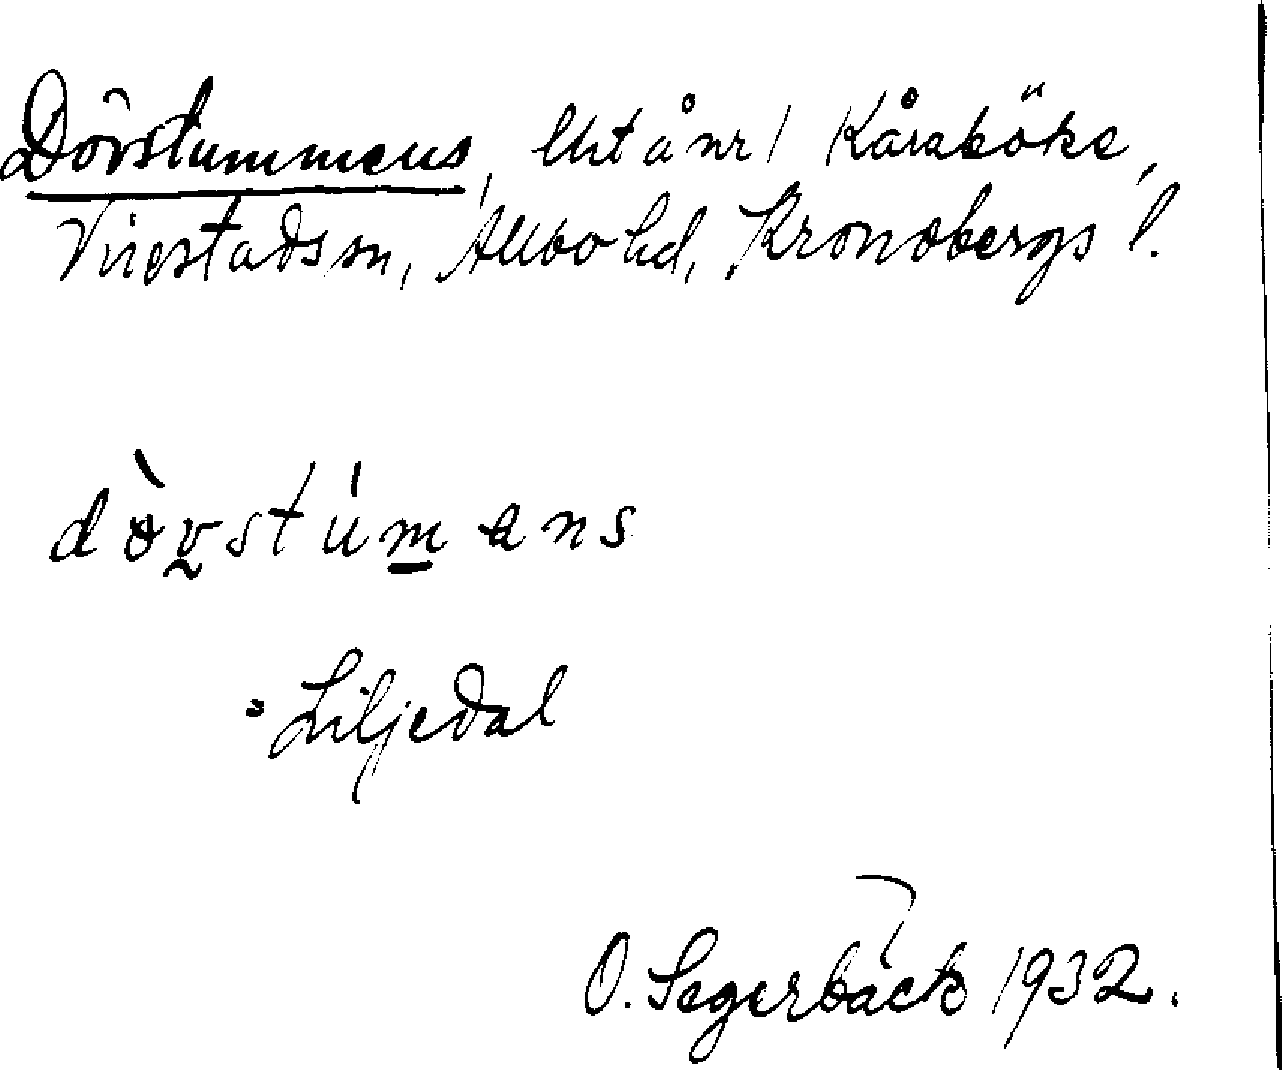 Dövstummens, Lht å nr 1 Kåraböke,
Virestads sn, Allbo hd, Kronobergs l.
dövstúmens
= Liljedal
O. Segerbäck 1932.